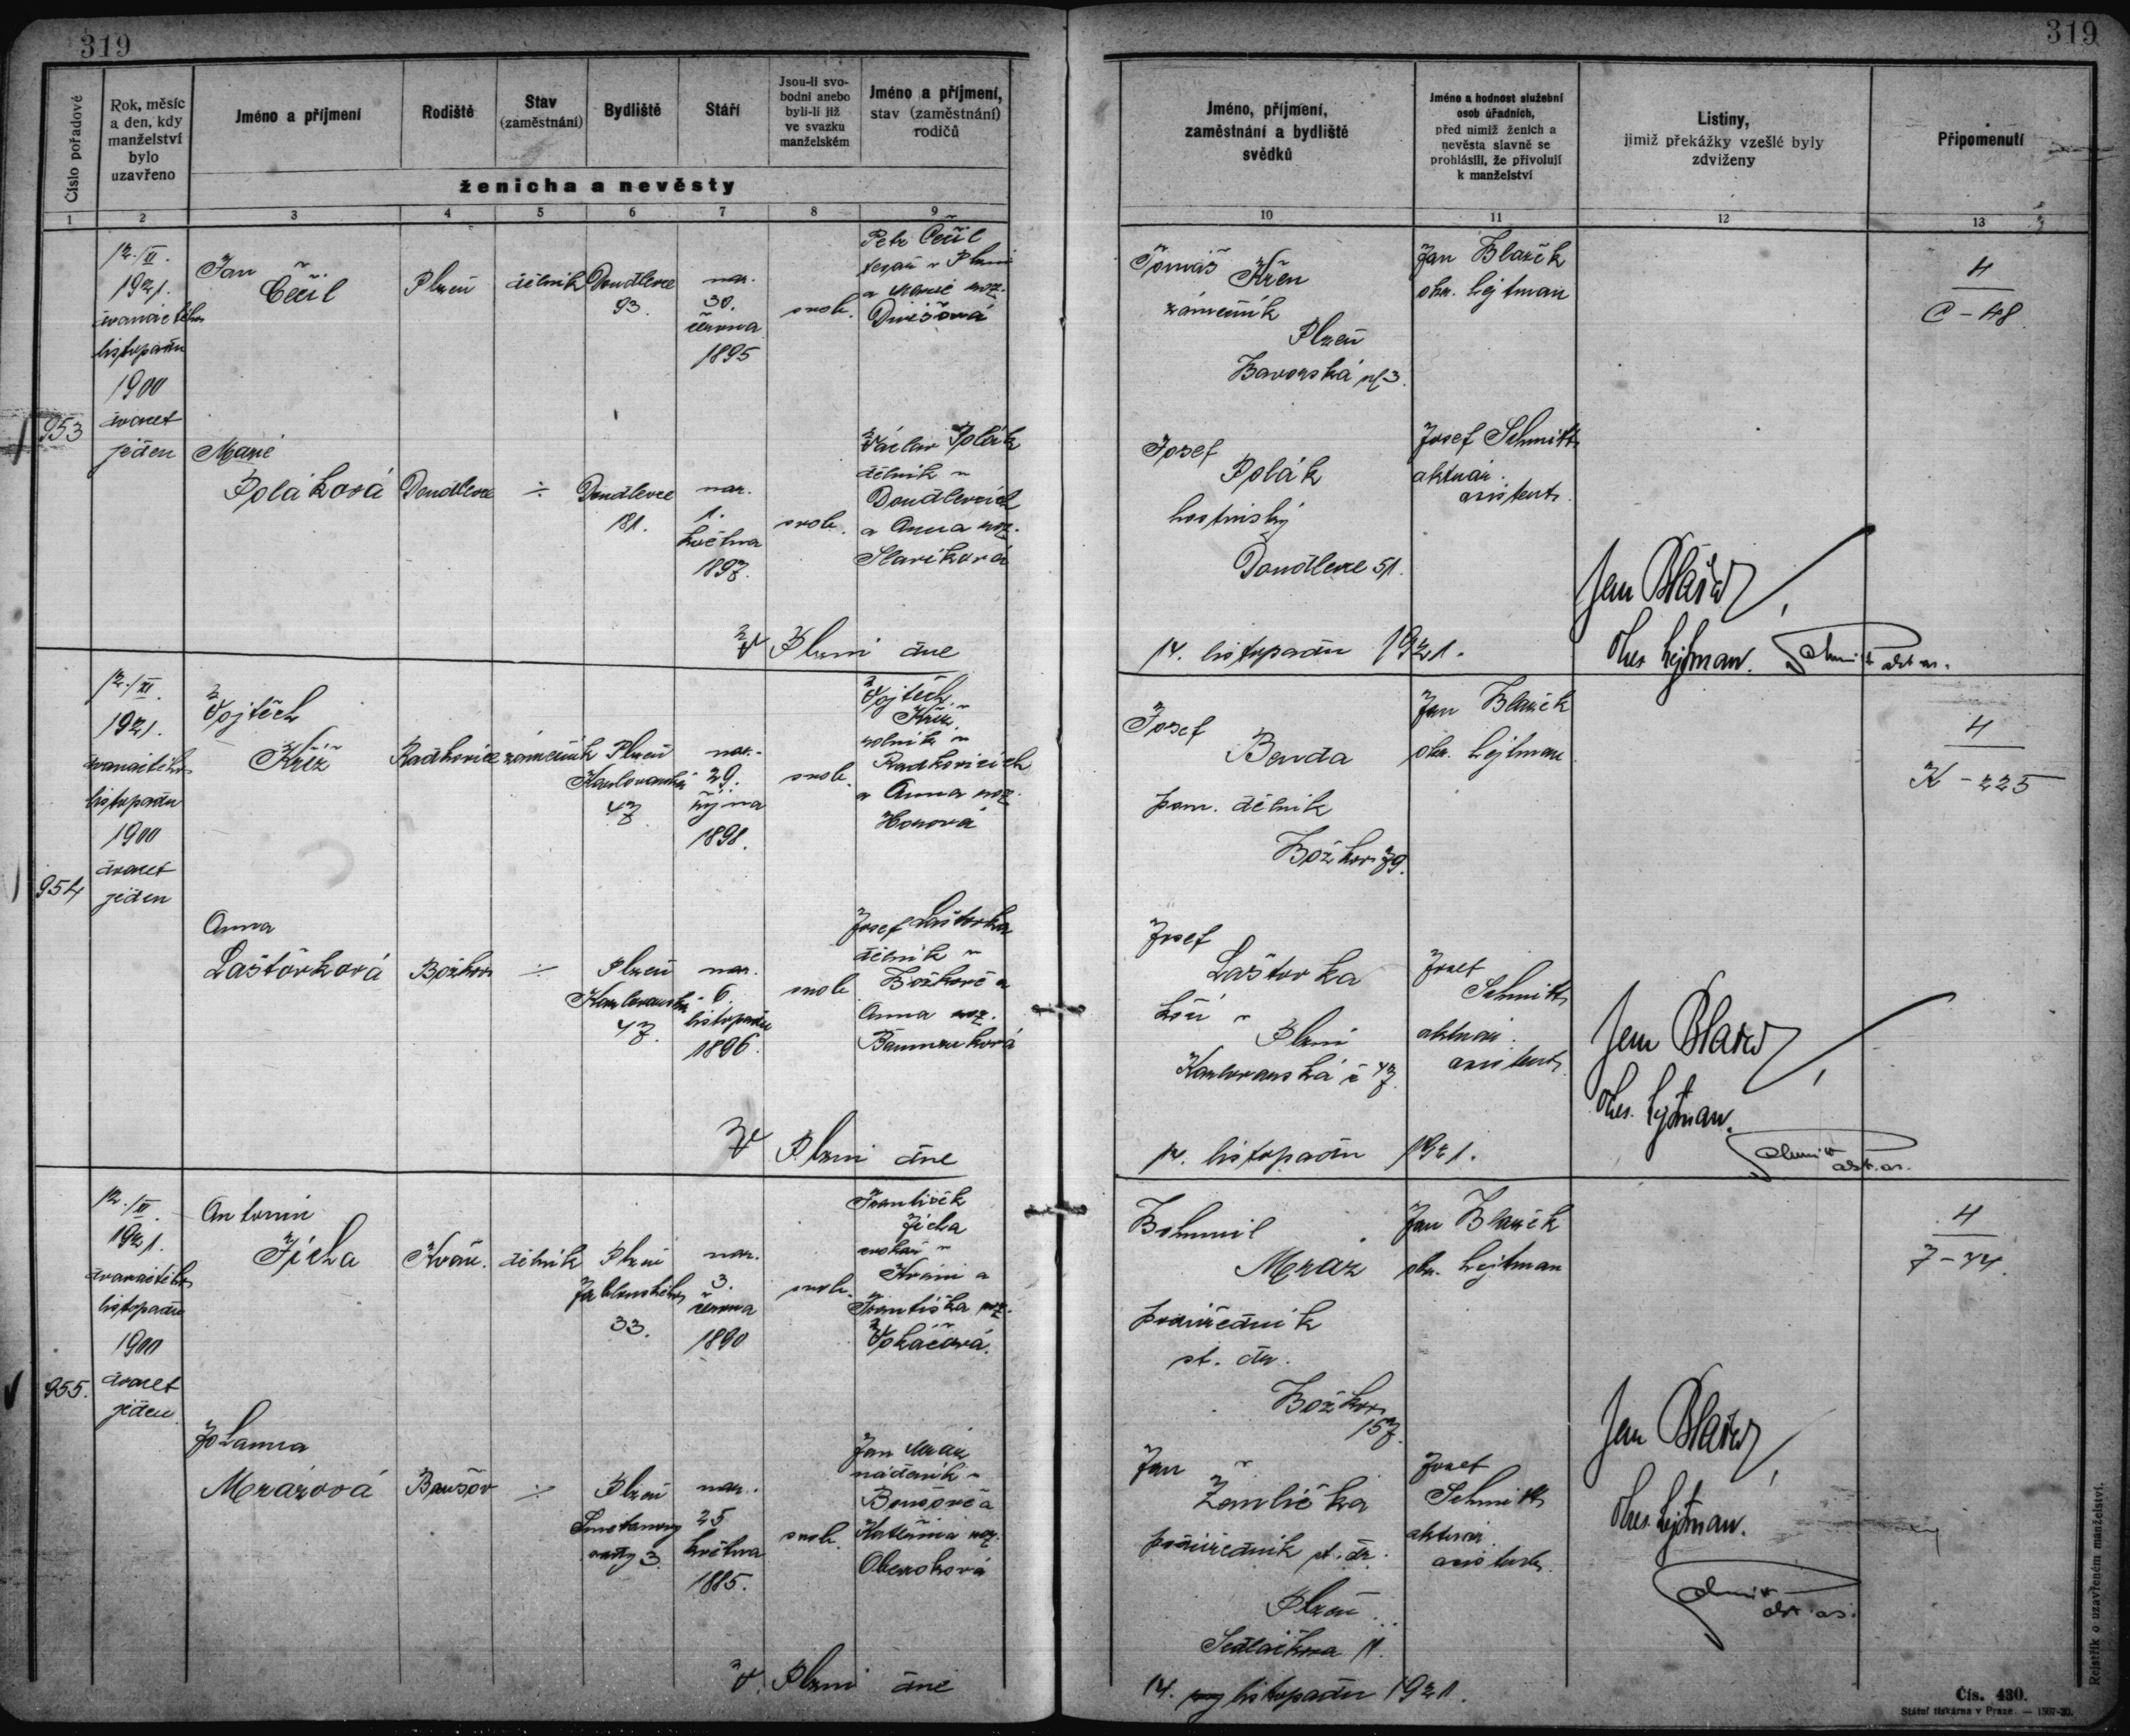 319
319
Číslo pořadové
Rok, měsíc
a den, kdy
manželství
bylo
uzavřeno
Jméno a příjmení
Rodiště
Stav
(zaměstnání)
Bydliště
Stáří
Jsou-li svo-
bodni anebo
byli-li již
ve svazku
manželském
Jméno a příjmení,
stav (zaměstnání)
rodičů
ženicha a nevěsty
Jméno, příjmení,
zaměstnání a bydliště
svědků
Jméno a hodnost služební
osob úřadních,
před nimiž ženich a
nevěsta slavně se
prohlásili, že přivolují
k manželství
Listiny,
jimiž překážky vzešlé byly
zdviženy
Připomenutí
1 2 3 4 5 6 7 8 9 10 11 12 13
953
12./XI.
1921.
dvanáctého
listopadu
1900
dvacet
jeden
Jan
Plzeň
dělník
Doudlevce
93.
nar.
30.
června
1895
svob.
Petr
tesař v Plzni
a Marie roz.
Divišová
Tomáš
Křen
zámečník
Plzeň
Bavorská ul 3.
Jan Blažek
okr. hejtman
4
C - 48
Marie
Poláková
Doudlevce
÷
Doudlevce
181.
nar.
1.
května
1897.
svob.
Václav Polák
dělník v
Doudlevcích
a Anna roz.
Slavíková
Josef
Polák
hostinský
Doudlevce 51.
Josef Schmitt
aktuár.
asistent.
V Plzni dne
14. listopadu 1921.
Jan Blažek
okr. hejtman.
954
12./XI.
1921.
dvanáctého
listopadu
1900
dvacet
jeden
Vojtěch
Kříž
Radkovice
zámečník
Plzeň
Karlovarská
47
nar.
29.
října
1898.
svob.
Vojtěch
Kříž
rolník v
Radkovicích
a Anna roz.
Josef
Benda
pom. dělník
Božkov 79.
Jan Blažek
okr. hejtman
4
K - 225
Anna
Laštovková
Božkov
÷
Plzeň
Karlovarská
47.
nar.
6.
listopadu
1896.
svob
Josef Laštovka
dělník v
Božkově a
Anna roz.
Josef
Laštovka
kočí v
Plzni
Karlovarská č 47.
Josef
Schmitt
aktuár.
asistent.
V Plzni dne
14. listopadu 1921.
Jan Blažek
okr. hejtman.
955.
12./XI.
1921.
dvanáctého
listopadu
1900
dvacet
jeden
Antonín
Jícha
dělník
Plzeň
Jablonského
33.
nar.
3.
června
1890
svob.
František
Jícha
v
a
Františka roz.
Voháčová.
Bohumil
Mraz
podúředník
st. dr.
Božkov
157.
Jan Blažek
okr. hejtman
4
J - 44.
Johanna
Mrázová
÷
Plzeň
Smetanovy
sady 3.
nar.
25
května
1885.
svob.
Jan Mráz
nádeník v
a
Kateřina roz.
Jan
Žemlička
podúředník st. dr.
Plzeň
Sedláčkova 11.
Josef
Schmitt
aktuár.
asistent.
V Plzni dne
14. listopadu 1921.
Jan Blažek
okr. hejtman.
Rejstřík o uzavřeném manželství.
Čís. 430.
Státní tiskárna v Praze. — 1507-20.